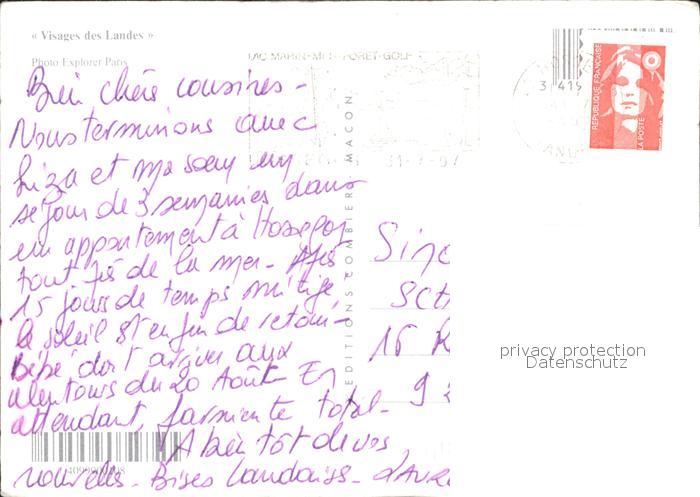 « Visages des Landes »
Photo Explorer Paris
Bien chers cousines -
Nous terminons avec
Liza et ma soeur un
séjour de 3 semaines dans
un appartement à Hossegor
tout près de la mer - Après
15 jours de temps mitigé
le soleil est enfin de retour -
Bébé doit arriver aux
alentours du 20 Août - En
attendant, farniente total -
A bientôt de vos
nouvelles - Bises landaises -
LAC MARIN-MER-FORET-GOLF
31-7-97
RÉPUBLIQUE FRANÇAISE
LA POSTE
EDITIONS COMBIER MACON
15
privacy protection
Datenschutz